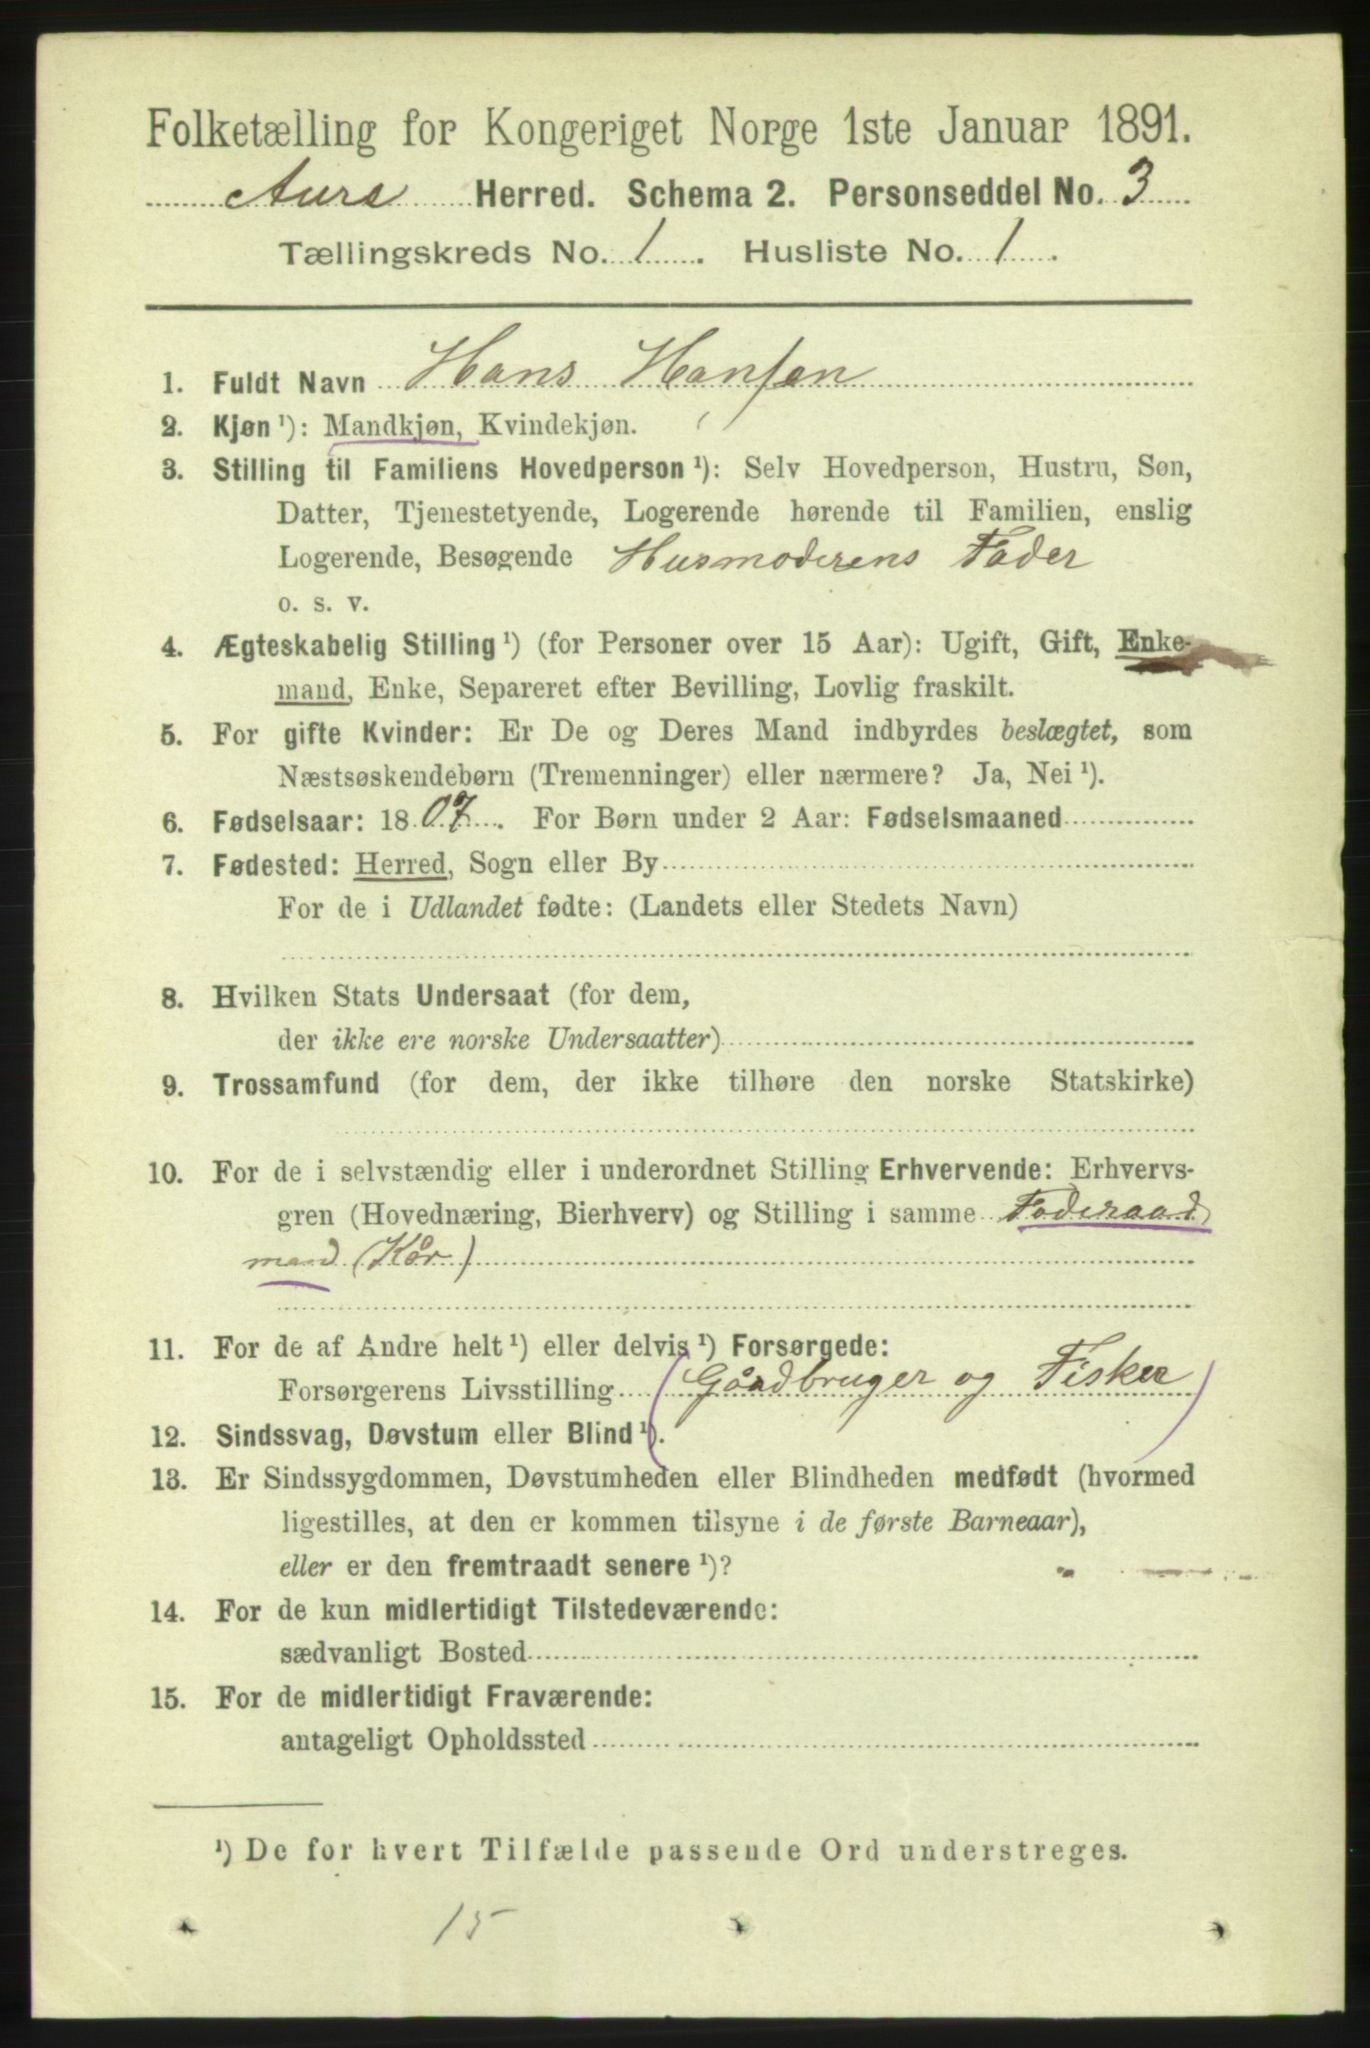 Folketælling for Kongeriget Norge 1ste Januar 1891.
Aure Herred. Schema 2. Personseddel No. 3
Tællingskreds No. 1. Husliste No. 1.
1. Fuldt Navn Hans Hansen
2. Kjøn ¹): Mandkjøn, Kvindekjøn.
3. Stilling til Familiens Hovedperson ¹): Selv Hovedperson, Hustru, Søn,
Datter, Tjenestetyende, Logerende hørende til Familien, enslig
Logerende, Besøgende Husmoderens Fader
o. s. v.
4. Ægteskabelig Stilling ¹) (for Personer over 15 Aar): Ugift, Gift, Enke-
mand, Enke, Separeret efter Bevilling, Lovlig fraskilt.
5. For gifte Kvinder: Er De og Deres Mand indbyrdes beslægtet, som
Næstsøskendebørn (Tremenninger) eller nærmere? Ja, Nei ¹).
6. Fødselsaar: 1807. For Børn under 2 Aar: Fødselsmaaned
7. Fødested: Herred, Sogn eller By
For de i Udlandet fødte: (Landets eller Stedets Navn)
8. Hvilken Stats Undersaat (for dem,
der ikke ere norske Undersaatter)
9. Trossamfund (for dem, der ikke tilhøre den norske Statskirke)
10. For de i selvstændig eller i underordnet Stilling Erhvervende: Erhvervs-
gren (Hovednæring, Bierhverv) og Stilling i samme Føderaad
mand (Kår)
11. For de af Andre helt ¹) eller delvis ¹) Forsørgede:
Forsørgerens Livsstilling (Gårdbruger og Fisker)
12. Sindssvag, Døvstum eller Blind ¹).
13. Er Sindssygdommen, Døvstumheden eller Blindheden medfødt (hvormed
ligestilles, at den er kommen tilsyne i de første Barneaar),
eller er den fremtraadt senere ¹)?
14. For de kun midlertidigt Tilstedeværende:
sædvanligt Bosted
15. For de midlertidigt Fraværende:
antageligt Opholdssted
¹) De for hvert Tilfælde passende Ord understreges.
15